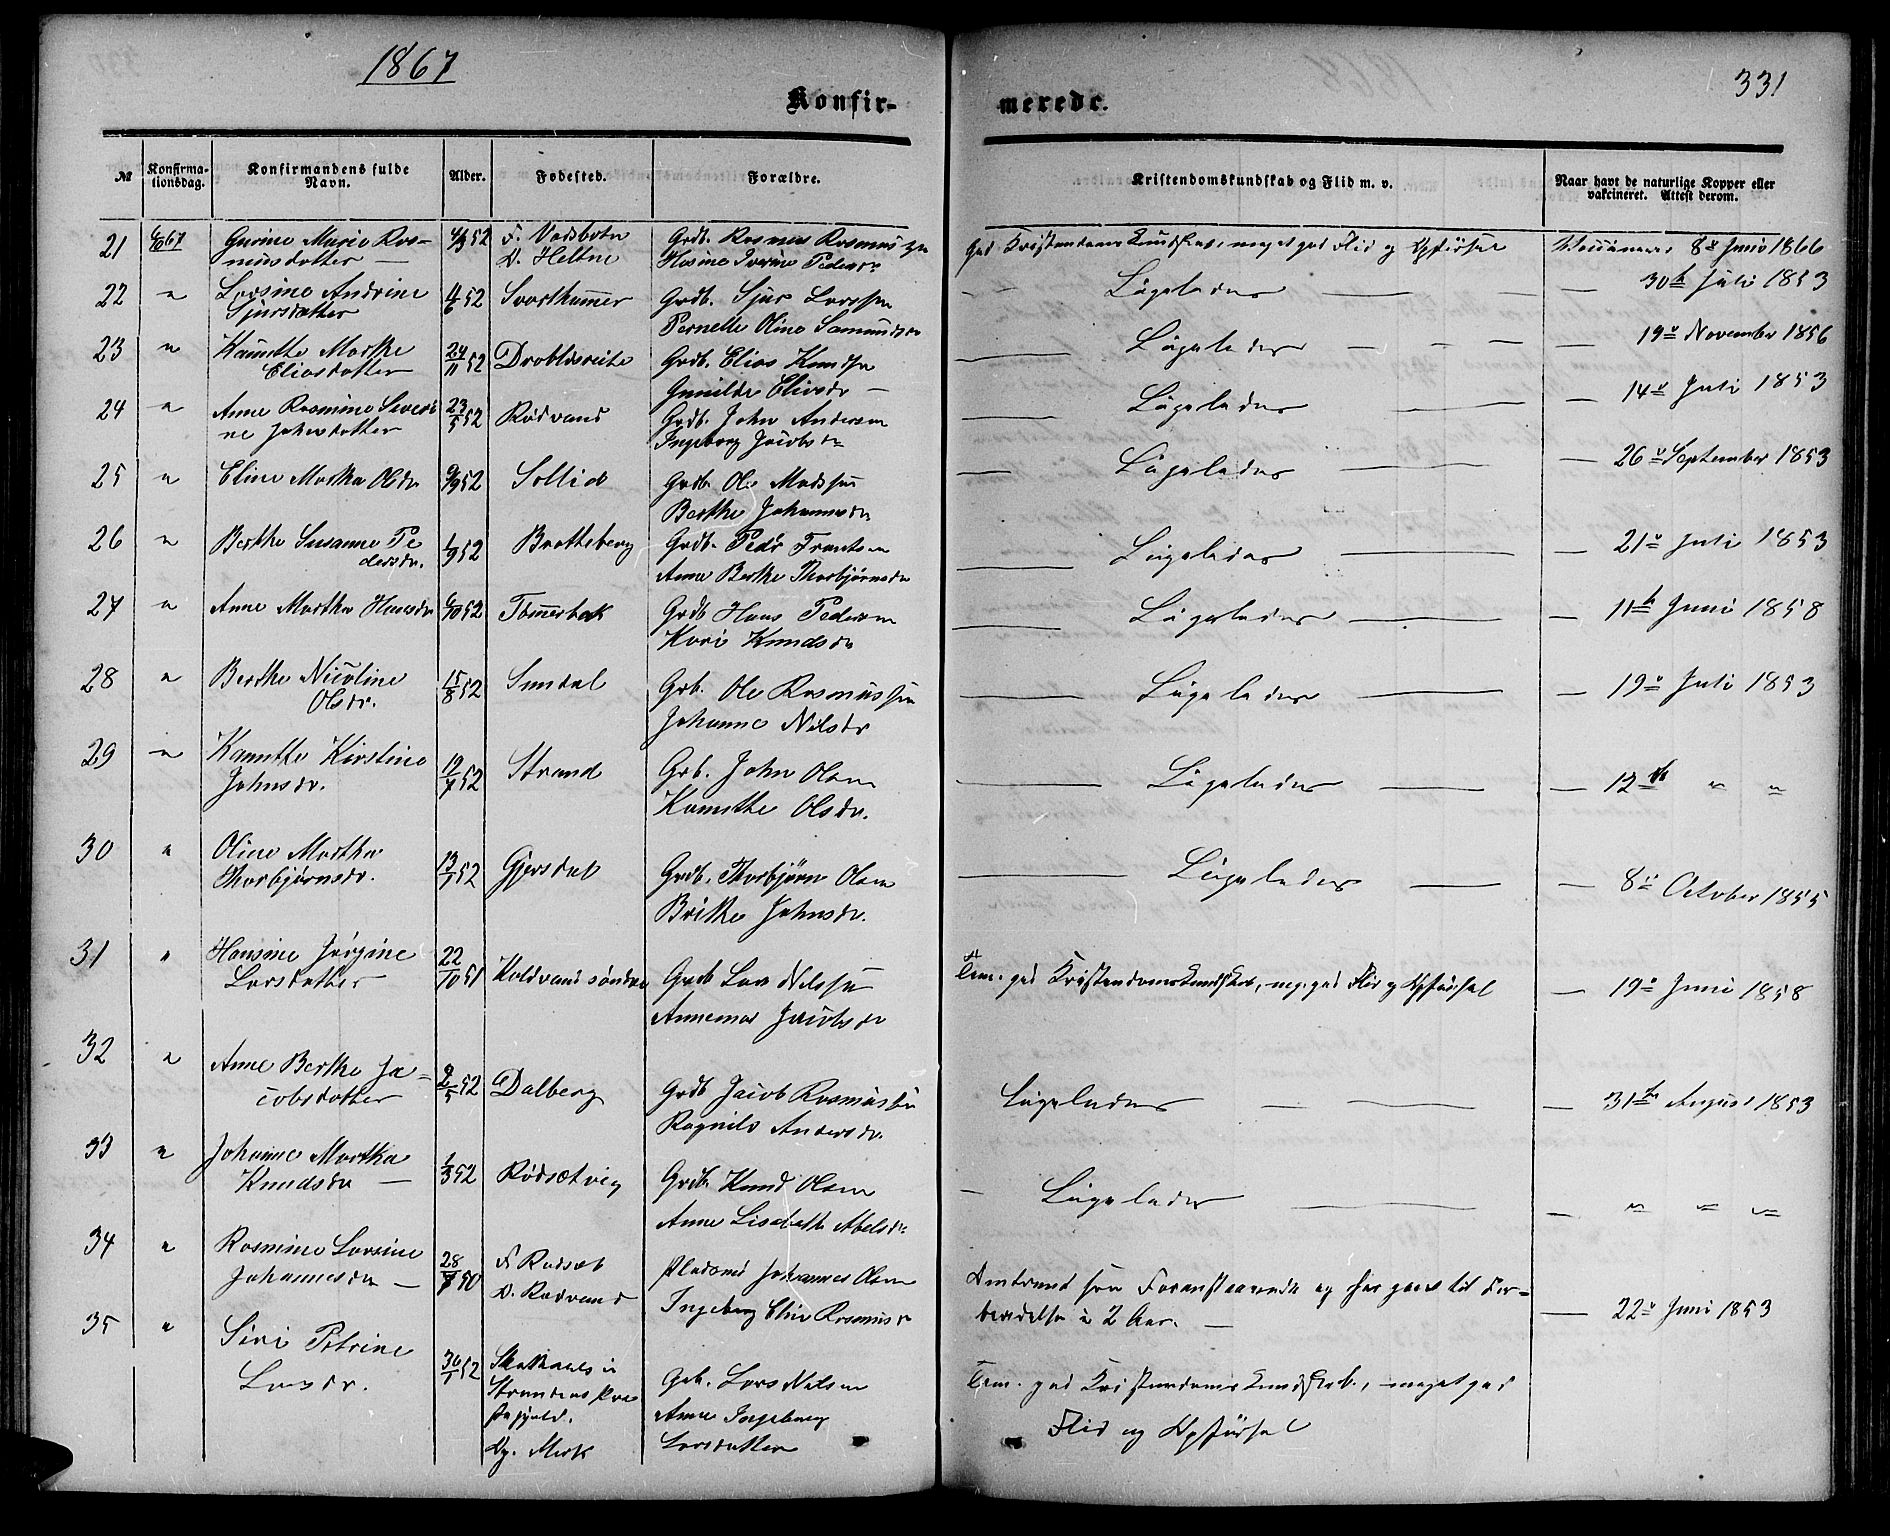 1867
331
Konfir-
merede.
№
Konfirma-
tionsdag.
Konfirmandens fulde
Navn.
Alder.
Fødested.
Forældre.
Kristendomskundskab og Flid m. v.
Naar havt de naturlige Kopper eller
vakcineret. Attest derom.
21 6/10 67 Gurine Marie Ras- 4/3 52 F. Vadsbotn Grdb. Rasmus Rasmussen God Kristendomskundskab, meget god Flid og Opførsel Vaccineret 8de Juni 1866
musdatter — D. Heltne Hasine Iverine Pedersdr
22 " Larsine Andrine 4/6 52 Svarthamer Grdb. Sjur Larssen — Ligeledes — — 30te Juli 1853
Sjursdatter Pernelle Oline Samundsdr
23 " Kanutte Marthe 24/11 52 Drabløsreite Grdb. Elias Knudsen — Ligeledes — — 19de November 1856
Eliasdatter Gunilde Eliasdr —
24 " Anne Rasmine Severi 23/5 52 Rødvand Grdb. John Andersen — Ligeledes — — 14de Juli 1853
ne Johnsdatter Ingeborg Jacobsdr
25 " Eline Martha Olsdr 9/9 52 Sollid Grdb. Ole Madssen — Ligeledes — — 26de September 1853
Berthe Johannesdr
26 " Berthe Susanne Pe 1/9 52 Bratteberg Grdb. Peder Frantsen — Ligeledes — — 21de Juli 1853
dersdr. Anne Berthe Thorbjørnsdr
27 " Anne Martha Hansdr 6/10 52 Tømerbak Grdb Hans Pedersen — Ligeledes — — 11te Juni 1858
Kari Knudsdr
28 " Berthe Nicoline 15/8 52 Sundal Grb. Ole Rasmussen — Ligeledes — — 19de Juli 1853
Olsdr. Johanne Nilsdr
29 " Kanutte Kirstine 19/7 52 Strand Grb. John Olsen — Ligeledes — — 12te " "
Johnsdr. Kanutthe Olsdr.
30 " Oline Martha 13/7 52 Gjersdal Grdb. Thorbjørn Olsen — Ligeledes — — 8de October 1855
Thorbjørnsdr. Brithe Johnsdr.
31 " Hansine Jørgine 22/10 51 Koldvand søndre Grdb Lars Nilssen Tem. god Kristendomskundskab, meg. god Flid og Opførsel — 19de Juni 1858
Larsdatter Annemar Jacobsdr
32 " Anne Berthe Ja- 9/5 52 Dalberg Grdb Jacob Rasmussen Ligeledes — — — 31te August 1853
cobsdatter Ragnild Andersdr.
33 " Johanne Martha 1/3 52 Rødsætvig Grdb. Knud Olsen — Ligeledes — — " " "
Knudsdr — Anne Lisebeth Abelsdr
34 " Rasmine Larsine 28/7 50 F. Rødsæt Pladsmd Johannes Olsen Omtrent som Foranstaaende og har gaaet til For-
Johannesdr — D. Rødvand Ingeborg Eline Rasmusdr beredelse i 2 Aar. — — 22de Juni 1853
35 " Siri Petrine 30/1 52 i Grb. Lars Nilsen Tem. god Kristendomskundskab, meget god
Larsdr. Strandens Præ Anne Ingeborg Flid og Opførsel
stegjeld. Larsdatter